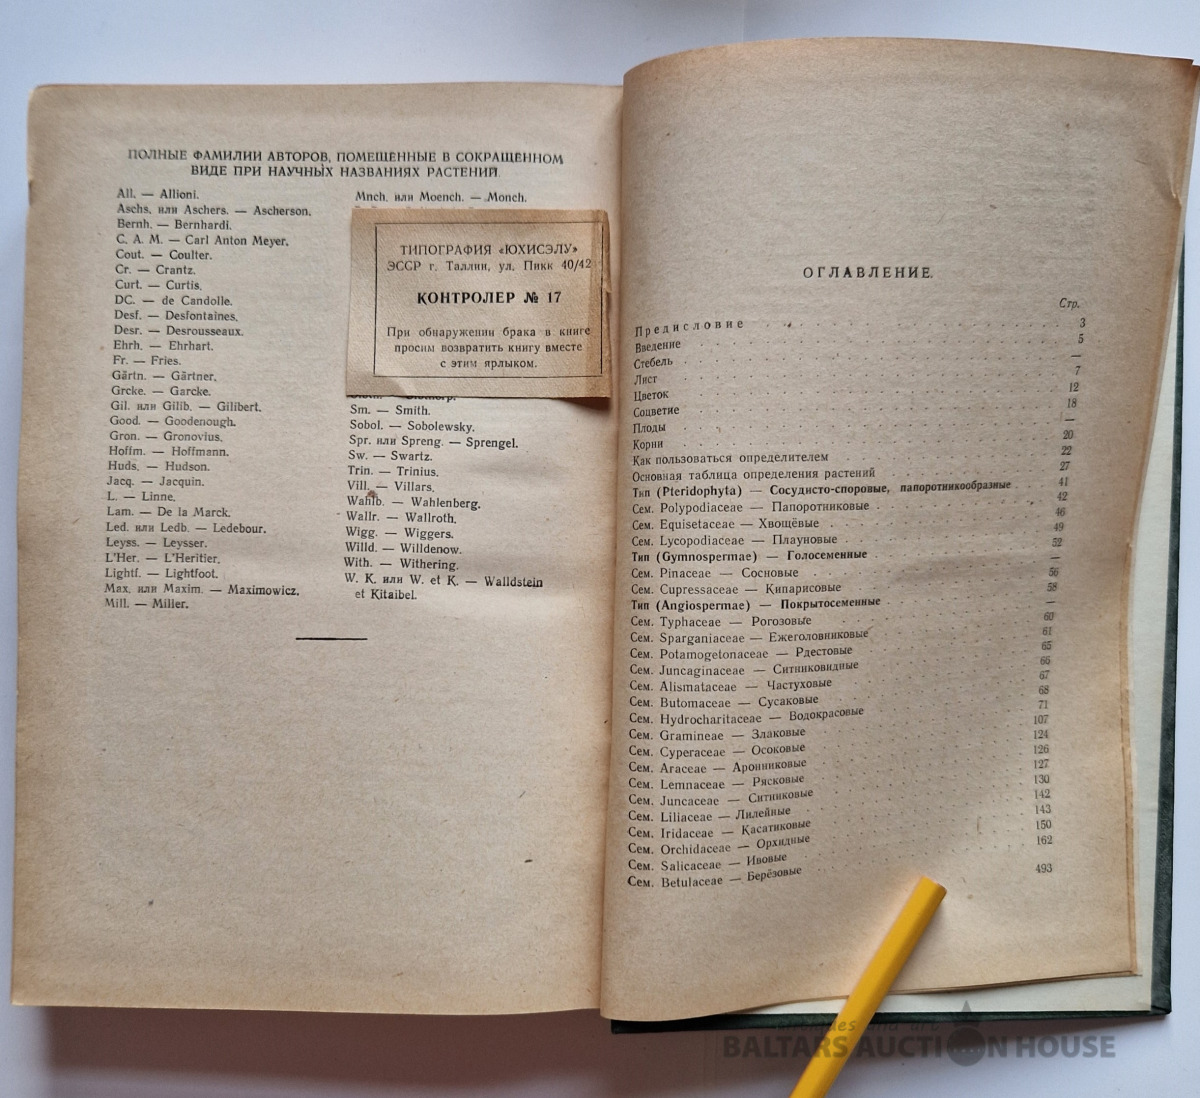 ПОЛНЫЕ ФАМИЛИИ АВТОРОВ, ПОМЕЩЕННЫЕ В СОКРАЩЕННОМ
ВИДЕ ПРИ НАУЧНЫХ НАЗВАНИЯХ РАСТЕНИЙ.
All. — Allioni.
Aschs. или Aschers. — Ascherson.
Bernh. — Bernhardi.
C. A. M. — Carl Anton Meyer.
Cout. — Coulter.
Cr. — Crantz.
Curt. — Curtis.
DC. — de Candolle.
Desf. — Desfontaines.
Desr. — Desrousseaux.
Ehrh. — Ehrhart.
Fr. — Fries.
Gärtn. — Gärtner.
Grcke. — Garcke.
Gil. или Gilib. — Gilibert.
Good. — Goodenough.
Gron. — Gronovius.
Hoffm. — Hoffmann.
Huds. — Hudson.
Jacq. — Jacquin.
L. — Linne.
Lam. — De la Marck.
Led. или Ledb. — Ledebour.
Leyss. — Leysser.
L'Her. — L'Heritier.
Lightf. — Lightfoot.
Max. или Maxim. — Maximowicz.
Mill. — Miller.
Mnch. или Moench. — Monch.
ТИПОГРАФИЯ «ЮХИСЭЛУ»
ЭССР г. Таллин, ул. Пикк 40/42
КОНТРОЛЕР № 17
При обнаружении брака в книге
просим возвратить книгу вместе
с этим ярлыком.
Sm. — Smith.
Sobol. — Sobolewsky.
Spr. или Spreng. — Sprengel.
Sw. — Swartz.
Trin. — Trinius.
Vill. — Villars.
Wahlb. — Wahlenberg.
Wallr. — Wallroth.
Wigg. — Wiggers.
Willd. — Willdenow.
With. — Withering.
W. K. или W. et K. — Walldstein
et Kitaibel.
ОГЛАВЛЕНИЕ.
Стр.
Предисловие 3
Введение 5
Стебель —
Лист 7
Цветок 12
Соцветие 18
Плоды —
Корни 20
Как пользоваться определителем 22
Основная таблица определения растений 27
Тип (Pteridophyta) — Сосудисто-споровые, папоротникообразные 41
Сем. Polypodiaceae — Папоротниковые 42
Сем. Equisetaceae — Хвощёвые 46
Сем. Lycopodiaceae — Плауновые 49
Тип (Gymnospermae) — Голосеменные 52
Сем. Pinaceae — Сосновые —
Сем. Cupressaceae — Кипарисовые 56
Тип (Angiospermae) — Покрытосеменные 58
Сем. Typhaceae — Рогозовые —
Сем. Sparganiaceae — Ежеголовниковые 60
Сем. Potamogetonaceae — Рдестовые 61
Сем. Juncaginaceae — Ситниковидные 65
Сем. Alismataceae — Частуховые 66
Сем. Butomaceae — Сусаковые 67
Сем. Hydrocharitaceae — Водокрасовые 68
Сем. Gramineae — Злаковые 71
Сем. Cyperaceae — Осоковые 107
Сем. Araceae — Аронниковые 124
Сем. Lemnaceae — Рясковые 126
Сем. Juncaceae — Ситниковые 127
Сем. Liliaceae — Лилейные 130
Сем. Iridaceae — Касатиковые 142
Сем. Orchidaceae — Орхидные 143
Сем. Salicaceae — Ивовые 150
Сем. Betulaceae — Берёзовые 162
493
BALTARS AUCTION HOUSE